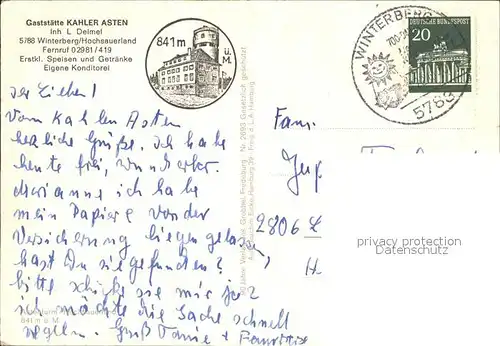 Gaststätte KAHLER ASTEN
Inh. L. Deimel
5788 Winterberg/Hochsauerland
Fernruf 02981/419
Erstkl. Speisen und Getränke
Eigene Konditorei
841 m ü. M.
WINTERBERG
5788
DEUTSCHE BUNDESPOST
20
Ihr Lieben!
Vom Kahlen Asten
herzliche Grüße. Ich habe
heute frei, wunderbar.
Marianne ich habe
mein Papiere von der
Versicherung liegen gelassen,
hast Du sie gefunden?
bitte schicke sie mir ja?
ich möchte die Sache schnell
regeln. Gruß Tante +
Fam.
2806
privacy protection
Datenschutz
841 m ü. M.
Nr. 2693 Gesetzlich geschützt